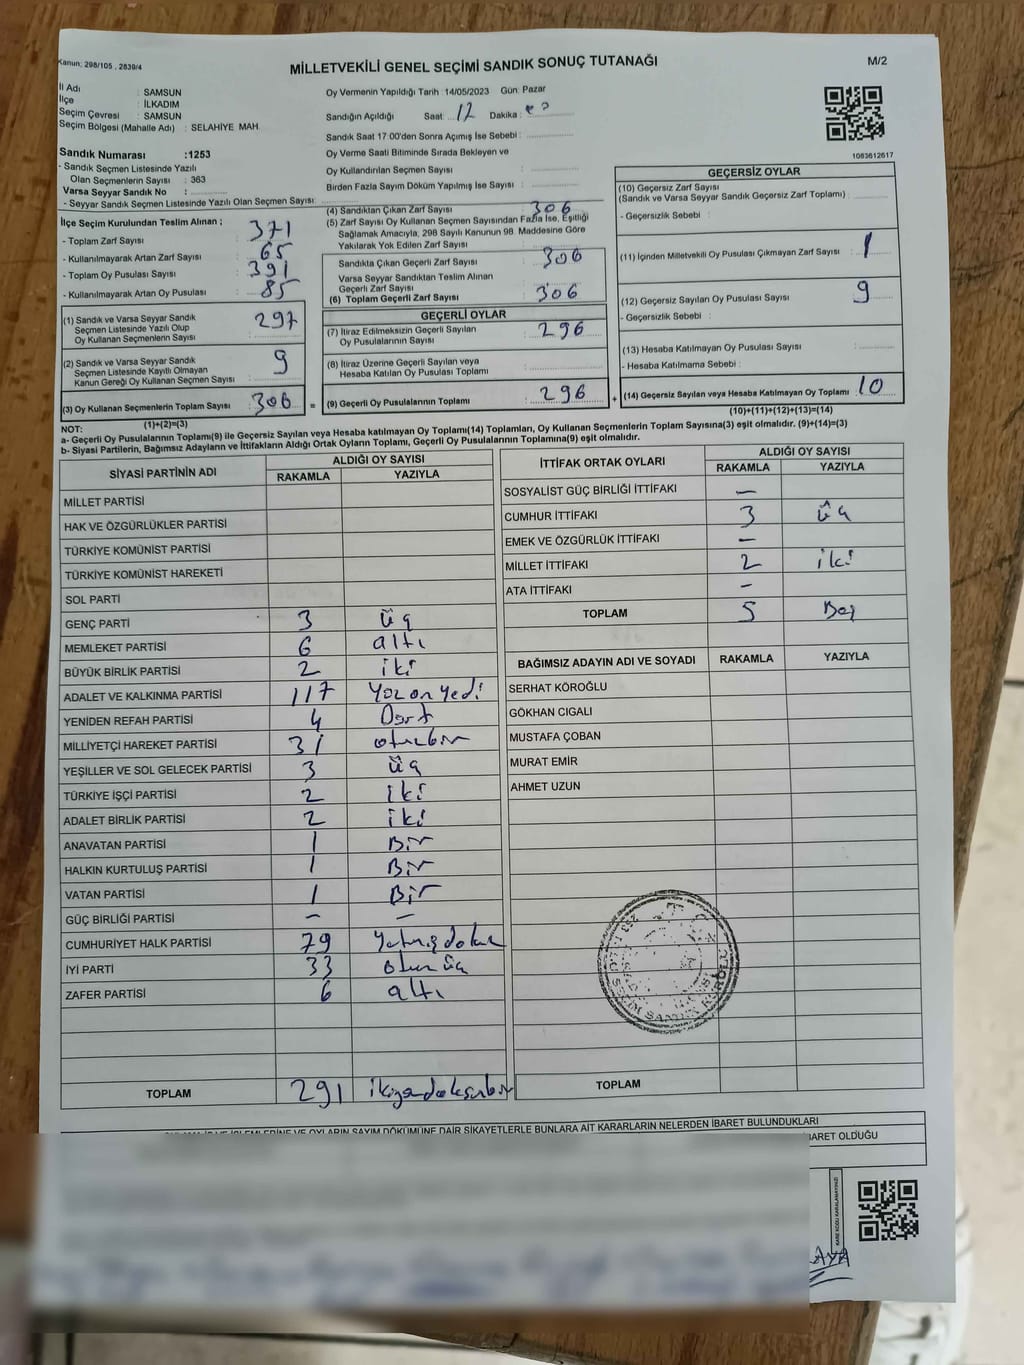 Kanun; 298/105 , 2839/4
MİLLETVEKİLİ GENEL SEÇİMİ SANDIK SONUÇ TUTANAĞI
M/2
İl Adı : SAMSUN
İlçe : İLKADIM
Seçim Çevresi : SAMSUN
Seçim Bölgesi (Mahalle Adı) : SELAHİYE MAH.
Oy Vermenin Yapıldığı Tarih :14/05/2023 Gün: Pazar
Sandığın Açıldığı Saat: 17 Dakika:
Sandık Saat 17:00'den Sonra Açımış İse Sebebi :
Oy Verme Saati Bitiminde Sırada Bekleyen ve
Oy Kullandırılan Seçmen Sayısı :
Birden Fazla Sayım Döküm Yapılmış İse Sayısı :
1083612617
Sandık Numarası :1253
- Sandık Seçmen Listesinde Yazılı
Olan Seçmenlerin Sayısı : 363
Varsa Seyyar Sandık No :
- Seyyar Sandık Seçmen Listesinde Yazılı Olan Seçmen Sayısı:
İlçe Seçim Kurulundan Teslim Alınan ;
- Toplam Zarf Sayısı : 371
- Kullanılmayarak Artan Zarf Sayısı : 65
- Toplam Oy Pusulası Sayısı : 391
- Kullanılmayarak Artan Oy Pusulası : 85
(1) Sandık ve Varsa Seyyar Sandık
Seçmen Listesinde Yazılı Olup
Oy Kullanan Seçmenlerin Sayısı : 297
(2) Sandık ve Varsa Seyyar Sandık
Seçmen Listesinde Kayıtlı Olmayan
Kanun Gereği Oy Kullanan Seçmen Sayısı : 9
(3) Oy Kullanan Seçmenlerin Toplam Sayısı : 306
(1)+(2)=(3)
(4) Sandıktan Çıkan Zarf Sayısı : 306
(5) Zarf Sayısı Oy Kullanan Seçmen Sayısından Fazla İse, Eşitliği
Sağlamak Amacıyla, 298 Sayılı Kanunun 98. Maddesine Göre
Yakılarak Yok Edilen Zarf Sayısı :
Sandıkta Çıkan Geçerli Zarf Sayısı : 306
Varsa Seyyar Sandıktan Teslim Alınan
Geçerli Zarf Sayısı :
(6) Toplam Geçerli Zarf Sayısı : 306
GEÇERLİ OYLAR
(7) İtiraz Edilmeksizin Geçerli Sayılan
Oy Pusulalarının Sayısı : 296
(8) İtiraz Üzerine Geçerli Sayılan veya
Hesaba Katılan Oy Pusulası Toplamı :
= (9) Geçerli Oy Pusulalarının Toplamı : 296
GEÇERSİZ OYLAR
(10) Geçersiz Zarf Sayısı
(Sandık ve Varsa Seyyar Sandık Geçersiz Zarf Toplamı) :
- Geçersizlik Sebebi :
(11) İçinden Milletvekili Oy Pusulası Çıkmayan Zarf Sayısı : 1
(12) Geçersiz Sayılan Oy Pusulası Sayısı : 9
- Geçersizlik Sebebi :
(13) Hesaba Katılmayan Oy Pusulası Sayısı :
- Hesaba Katılmama Sebebi :
+ (14) Geçersiz Sayılan veya Hesaba Katılmayan Oy Toplamı : 10
(10)+(11)+(12)+(13)=(14)
NOT:
a- Geçerli Oy Pusulalarının Toplamı(9) ile Geçersiz Sayılan veya Hesaba katılmayan Oy Toplamı(14) Toplamları, Oy Kullanan Seçmenlerin Toplam Sayısına(3) eşit olmalıdır. (9)+(14)=(3)
b- Siyasi Partilerin, Bağımsız Adayların ve İttifakların Aldığı Ortak Oyların Toplamı, Geçerli Oy Pusulalarının Toplamına(9) eşit olmalıdır.
SİYASİ PARTİNİN ADI ALDIĞI OY SAYISI
RAKAMLA YAZIYLA
MİLLET PARTİSİ
HAK VE ÖZGÜRLÜKLER PARTİSİ
TÜRKİYE KOMÜNİST PARTİSİ
TÜRKİYE KOMÜNİST HAREKETİ
SOL PARTİ
GENÇ PARTİ 3 üç
MEMLEKET PARTİSİ 6 altı
BÜYÜK BİRLİK PARTİSİ 2 iki
ADALET VE KALKINMA PARTİSİ 117 Yüz on yedi
YENİDEN REFAH PARTİSİ 4 Dört
MİLLİYETÇİ HAREKET PARTİSİ 31 otuzbir
YEŞİLLER VE SOL GELECEK PARTİSİ 3 üç
TÜRKİYE İŞÇİ PARTİSİ 2 iki
ADALET BİRLİK PARTİSİ 2 iki
ANAVATAN PARTİSİ 1 Bir
HALKIN KURTULUŞ PARTİSİ 1 Bir
VATAN PARTİSİ 1 Bir
GÜÇ BİRLİĞİ PARTİSİ – –
CUMHURİYET HALK PARTİSİ 79 Yetmiş dokuz
İYİ PARTİ 33 otuz üç
ZAFER PARTİSİ 6 altı
TOPLAM 291 ikiyüzdoksanbir
İTTİFAK ORTAK OYLARI ALDIĞI OY SAYISI
RAKAMLA YAZIYLA
SOSYALİST GÜÇ BİRLİĞİ İTTİFAKI –
CUMHUR İTTİFAKI 3 üç
EMEK VE ÖZGÜRLÜK İTTİFAKI –
MİLLET İTTİFAKI 2 iki
ATA İTTİFAKI –
TOPLAM 5 Beş
BAĞIMSIZ ADAYIN ADI VE SOYADI RAKAMLA YAZIYLA
SERHAT KÖROĞLU
GÖKHAN CIGALI
MUSTAFA ÇOBAN
MURAT EMİR
AHMET UZUN
TOPLAM
OYLARIN SAYIM DÖKÜMÜNE DAİR ŞİKAYETLERLE BUNLARA AİT KARARLARIN NELERDEN İBARET BULUNDUKLARI
İBARET OLDUĞU
KARE KODU KARALAMAYINIZ!